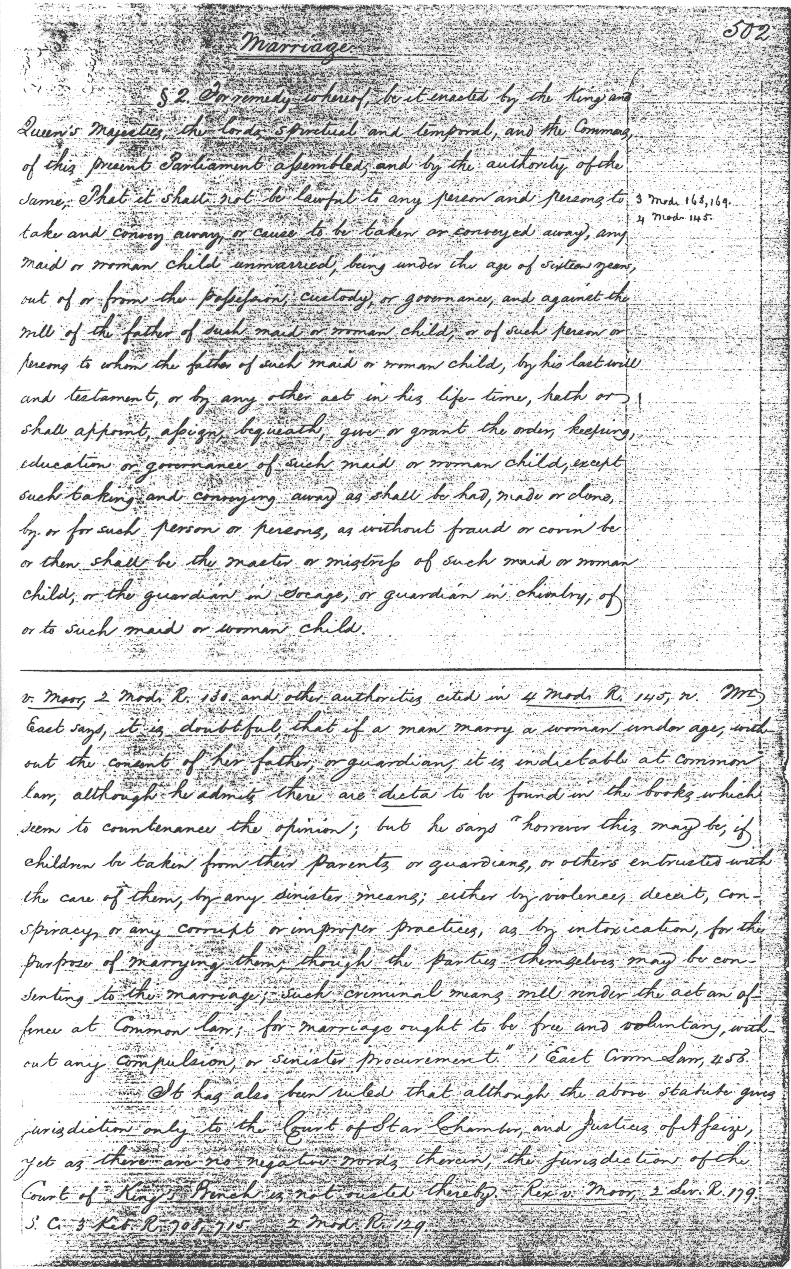 502
Marriage.
§ 2. For remedy whereof, be it enacted by the King and
Queen's Majesties, the lords spiritual and temporal, and the Commons,
of this present Parliament assembled, and by the authority of the
same, That it shall not be lawful to any person and persons to
3 Mod. 168, 169.
4 Mod. 145.
take and convey away, or cause to be taken or conveyed away, any
maid or woman child unmarried, being under the age of sixteen years,
out of or from the possession, custody, or governance, and against the
will of the father of such maid or woman child, or of such person or
persons to whom the father of such maid or woman child, by his last will
and testament, or by any other act in his life-time, hath or
shall appoint, assign, bequeath, give or grant the order, keeping,
education or governance of such maid or woman child, except
such taking and conveying away as shall be had, made or done,
by or for such person or persons, as without fraud or covin be
or then shall be the master or mistress of such maid or woman
child, or the guardian in socage, or guardian in chivalry, of
or to such maid or woman child.
v. Moor, 2 Mod. R. 130. and other authorities cited in 4 Mod. R. 145, n. Mr.
East says, it is doubtful, that if a man marry a woman under age, with-
out the consent of her father, or guardian, it is indictable at common
law, although he admits there are dicta to be found in the books which
seem to countenance the opinion; but he says "however this may be, if
children be taken from their parents or guardians, or others entrusted with
the care of them, by any sinister means; either by violence, deceit, con-
spiracy, or any corrupt or improper practices, as by intoxication, for the
purpose of marrying them, though the parties themselves may be con-
senting to the marriage; such criminal means will render the act an of-
fence at Common law; for marriage ought to be free and voluntary, with-
out any compulsion, or sinister procurement." 1 East Crown Law, 458.
It has also been ruled that although the above statute gives
jurisdiction only to the Court of Star Chamber, and Justices of Assize,
yet as there are no negative words therein, the jurisdiction of the
Court of King's Bench is not ousted thereby. Rex v. Moor, 2 Lev. R. 179.
S. C. 3 Keb. R. 708, 715 2 Mod. R. 129